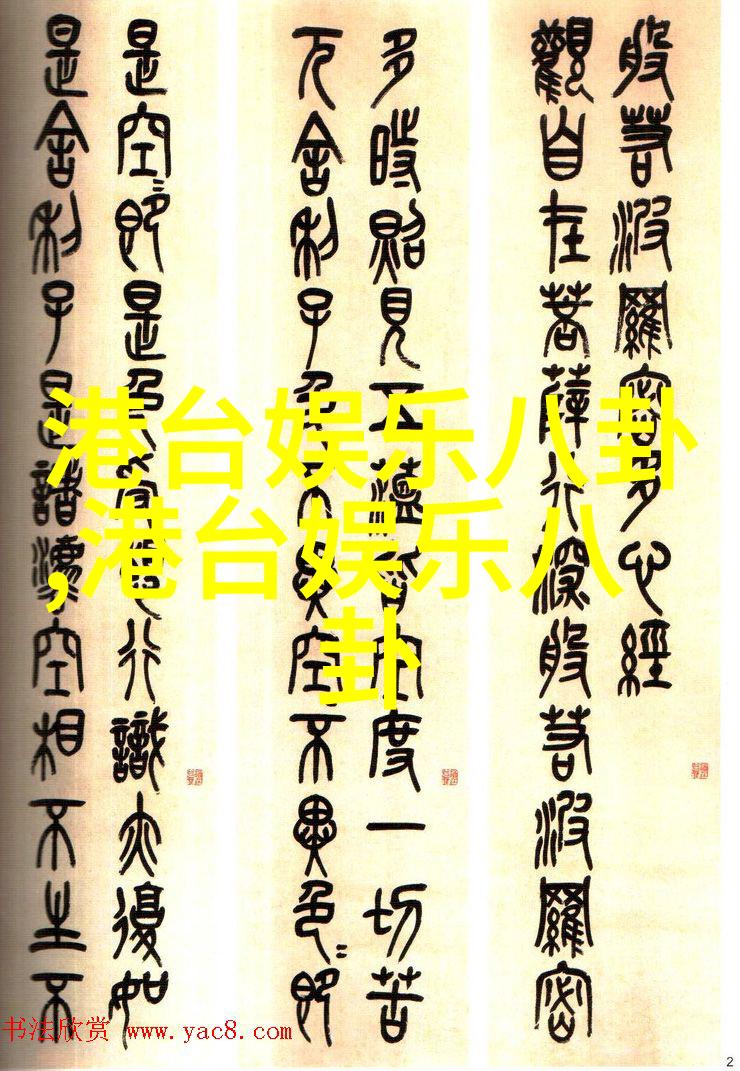 般若波羅密多心經
觀自在菩薩行深般若波羅密
多時照見五蘊皆空度一切苦
厄舍利子色不異空不異色〻即
是空〻即是色受想行識亦復如
是舍利子是諸法空相不生不
港台娱乐八卦
,港台娱乐八
卦
书法欣赏 www.yac8.com
2